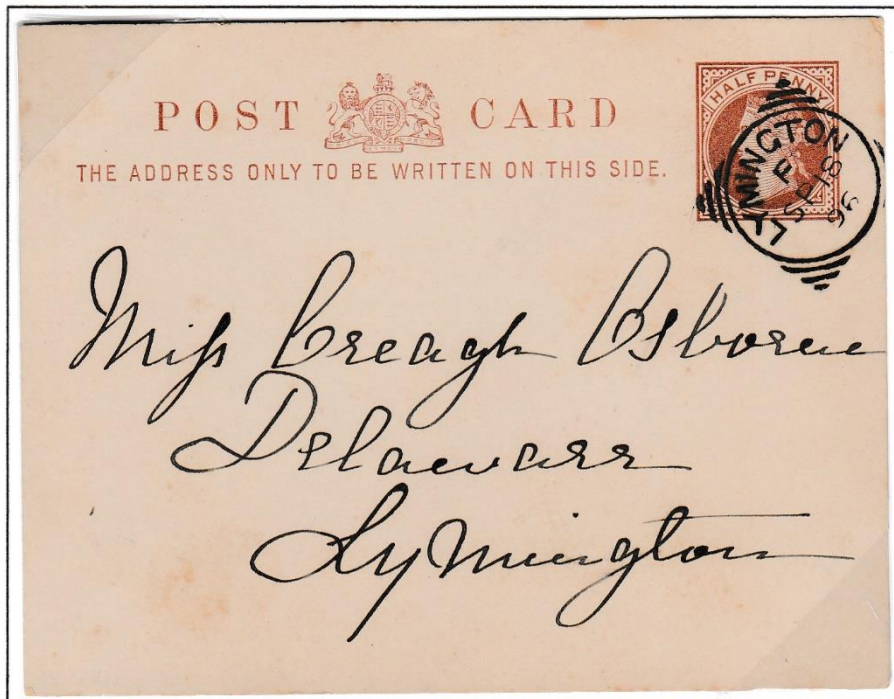 POST CARD
THE ADDRESS ONLY TO BE WRITTEN ON THIS SIDE.
HALF PENNY
LYMINGTON
F
SP 18
96
Miss Creagh Osborne
Delawarr
Lymington